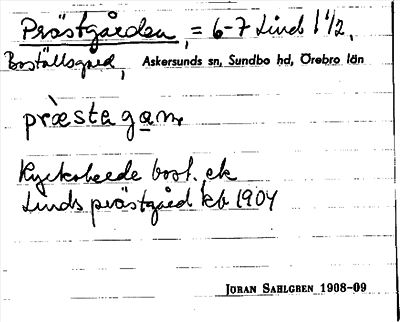 Prästgården, = 6-7 Lind 1 1/2,
Boställsgård, Askersunds sn, Sundbo hd, Örebro län
præstegaṉ
Kyrkoherde bost. ek
Linds prästgård kb 1904
JÖRAN SAHLGREN 1908-09